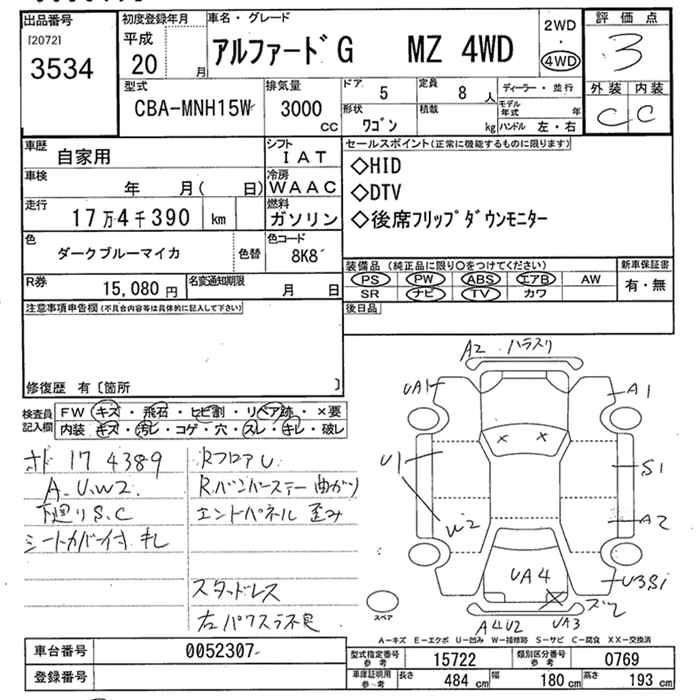 出品番号
[2072]
3534
初度登録年月
平成
20 月
車名・グレード
アルファードG MZ 4WD
2WD
・
4WD
評価点
3
外装 内装
C C
型式
CBA-MNH15W
排気量
3000
cc
ドア 5
定員 8 人
形状
ワゴン
積載
kg
ディーラー・並行
モデル年式 年
ハンドル 左・右
車歴
自家用
シフト
IAT
車検
年 月( 日)
冷房
WAAC
走行
17万4千390 km
燃料
ガソリン
色
ダークブルーマイカ
色替
色コード
8K8
R券
15,080 円
名変通知期限
月 日
セールスポイント(正常に機能するものに限ります)
◇HID
◇DTV
◇後席フリップダウンモニター
装備品 (純正品に限り○をつけてください)
PS PW ABS エアB AW
SR ナビ TV カワ
新車保証書
有・無
後日品
注意事項申告欄(不具合内容等は具体的に記入して下さい)
修復歴 有〔箇所 〕
検査員記入欄
FW キズ・飛石・ヒビ割・リペア跡・×要
内装 キズ・汚レ・コゲ・穴・スレ・キレ・破レ
17 4389
A.U.W2.
下廻りS.C
シートカバー付 キレ
RフロアU
Rバンパーステー曲がり
エンドパネル歪み
スタッドレス
左パワスラ不良
A2
UA1
A1
U1
S1
A2
W2
UA4
U3S1
UA3
スペア
A-キズ E-エクボ U-凹み W-補修跡 S-サビ C-腐食 XX-交換済
車台番号
0052307
登録番号
型式指定番号
参考
15722
類別区分番号
参考
0769
車庫証明用
参考
長さ 484 cm
幅 180 cm
高さ 193 cm